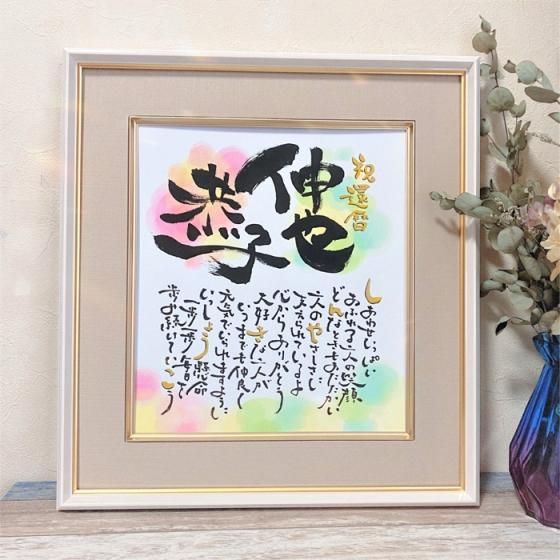 祝還暦
伸也
恭子
しあわせいっぱい
あふれる二人の笑顔
どんなときもあたたかい
二人のやさしさに
支えられているよ
心からありがとう
大好きな二人が
いつまでも仲良く
元気でいられますように
いっしょう懸命
一歩一歩
歩み続けていこう